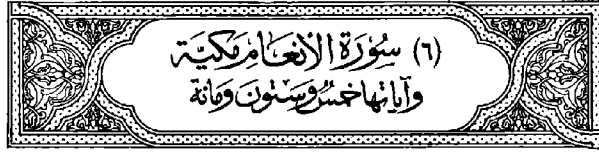 (٦) سُورَةُ الأَنْعَامِ مَكِيَّة
وَآيَاتُهَا خَمْسٌ وَسِتُّونَ وَمَائَة